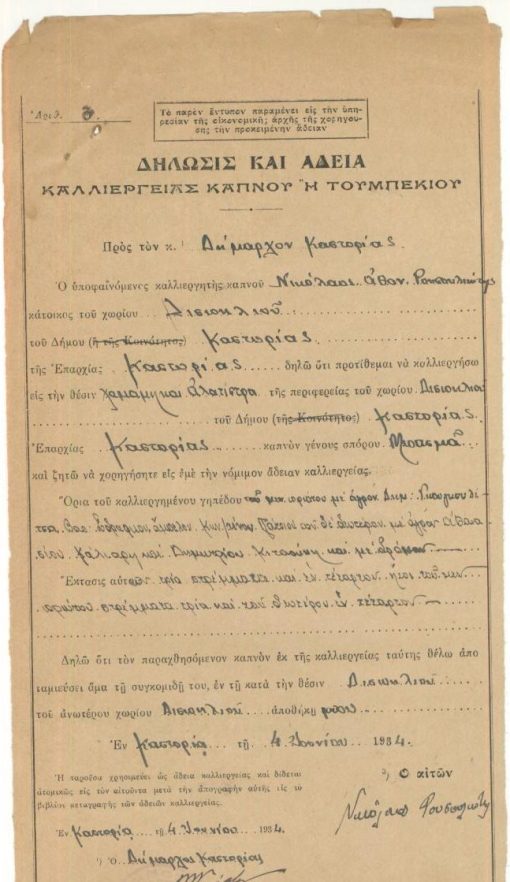 Ἀριθ. 3.
Τὸ παρὸν ἔντυπον παραμένει εἰς τὴν ὑπη-
ρεσίαν τῆς οἰκονομικῆς ἀρχῆς τῆς χορηγου-
σης τὴν προκειμένην ἄδειαν
ΔΗΛΩΣΙΣ ΚΑΙ ΑΔΕΙΑ
ΚΑΛΛΙΕΡΓΕΙΑΣ ΚΑΠΝΟΥ Ἢ ΤΟΥΜΠΕΚΙΟΥ
Πρὸς τὸν κ. Δήμαρχον Καστορίας.
Ὁ ὑποφαινόμενος καλλιεργητὴς καπνοῦ Νικόλαος Ἀθαν.
κάτοικος τοῦ χωρίου Δισπηλιοῦ
τοῦ Δήμου (ἢ τῆς Κοινότητος) Καστορίας
τῆς Ἐπαρχίας Καστορίας δηλῶ ὅτι προτίθεμαι νὰ καλλιεργήσω
εἰς τὴν θέσιν καὶ τῆς περιφερείας τοῦ χωρίου
τοῦ Δήμου (τῆς Κοινότητος) Καστορίας.
Ἐπαρχίας Καστορίας καπνὸν γένους σπόρου Μπασμᾶ
καὶ ζητῶ νὰ χορηγήσητε εἰς ἐμὲ τὴν νόμιμον ἄδειαν καλλιεργείας.
Ὅρια τοῦ καλλιεργημένου γηπέδου τοῦ μὲν πρώτου μὲ ἀγρὸν
καὶ Δημητρίου καὶ μὲ δρόμον
Ἔκτασις αὐτοῦ τρία στρέμματα καὶ ἓν τέταρτον ἤτοι τοῦ μὲν
πρώτου στρέμματα τρία καὶ τοῦ δευτέρου ἓν τέταρτον
Δηλῶ ὅτι τὸν παραχθησόμενον καπνὸν ἐκ τῆς καλλιεργείας ταύτης θέλω ἀπο
ταμιεύσει ἅμα τῇ συγκομιδῇ του, ἐν τῇ κατὰ τὴν θέσιν Δισπηλιοῦ
τοῦ ἀνωτέρου χωρίου Δισπηλιοῦ ἀποθήκῃ μου
Ἐν Καστορίᾳ τῇ 4 Ἰουνίου 1934.
Ἡ παροῦσα χρησιμεύει ὡς ἄδεια καλλιεργείας καὶ δίδεται
ἀτομικῶς εἰς τὸν αἰτοῦντα μετὰ τὴν ἀπογραφὴν αὐτῆς εἰς τὸ
βιβλίον καταγραφῆς τῶν ἀδειῶν καλλιεργείας.
Ὁ αἰτῶν
Νικόλαος
Ἐν Καστορίᾳ τῇ 4 Ἰουνίου 1934.
Ὁ Δήμαρχος Καστορίας